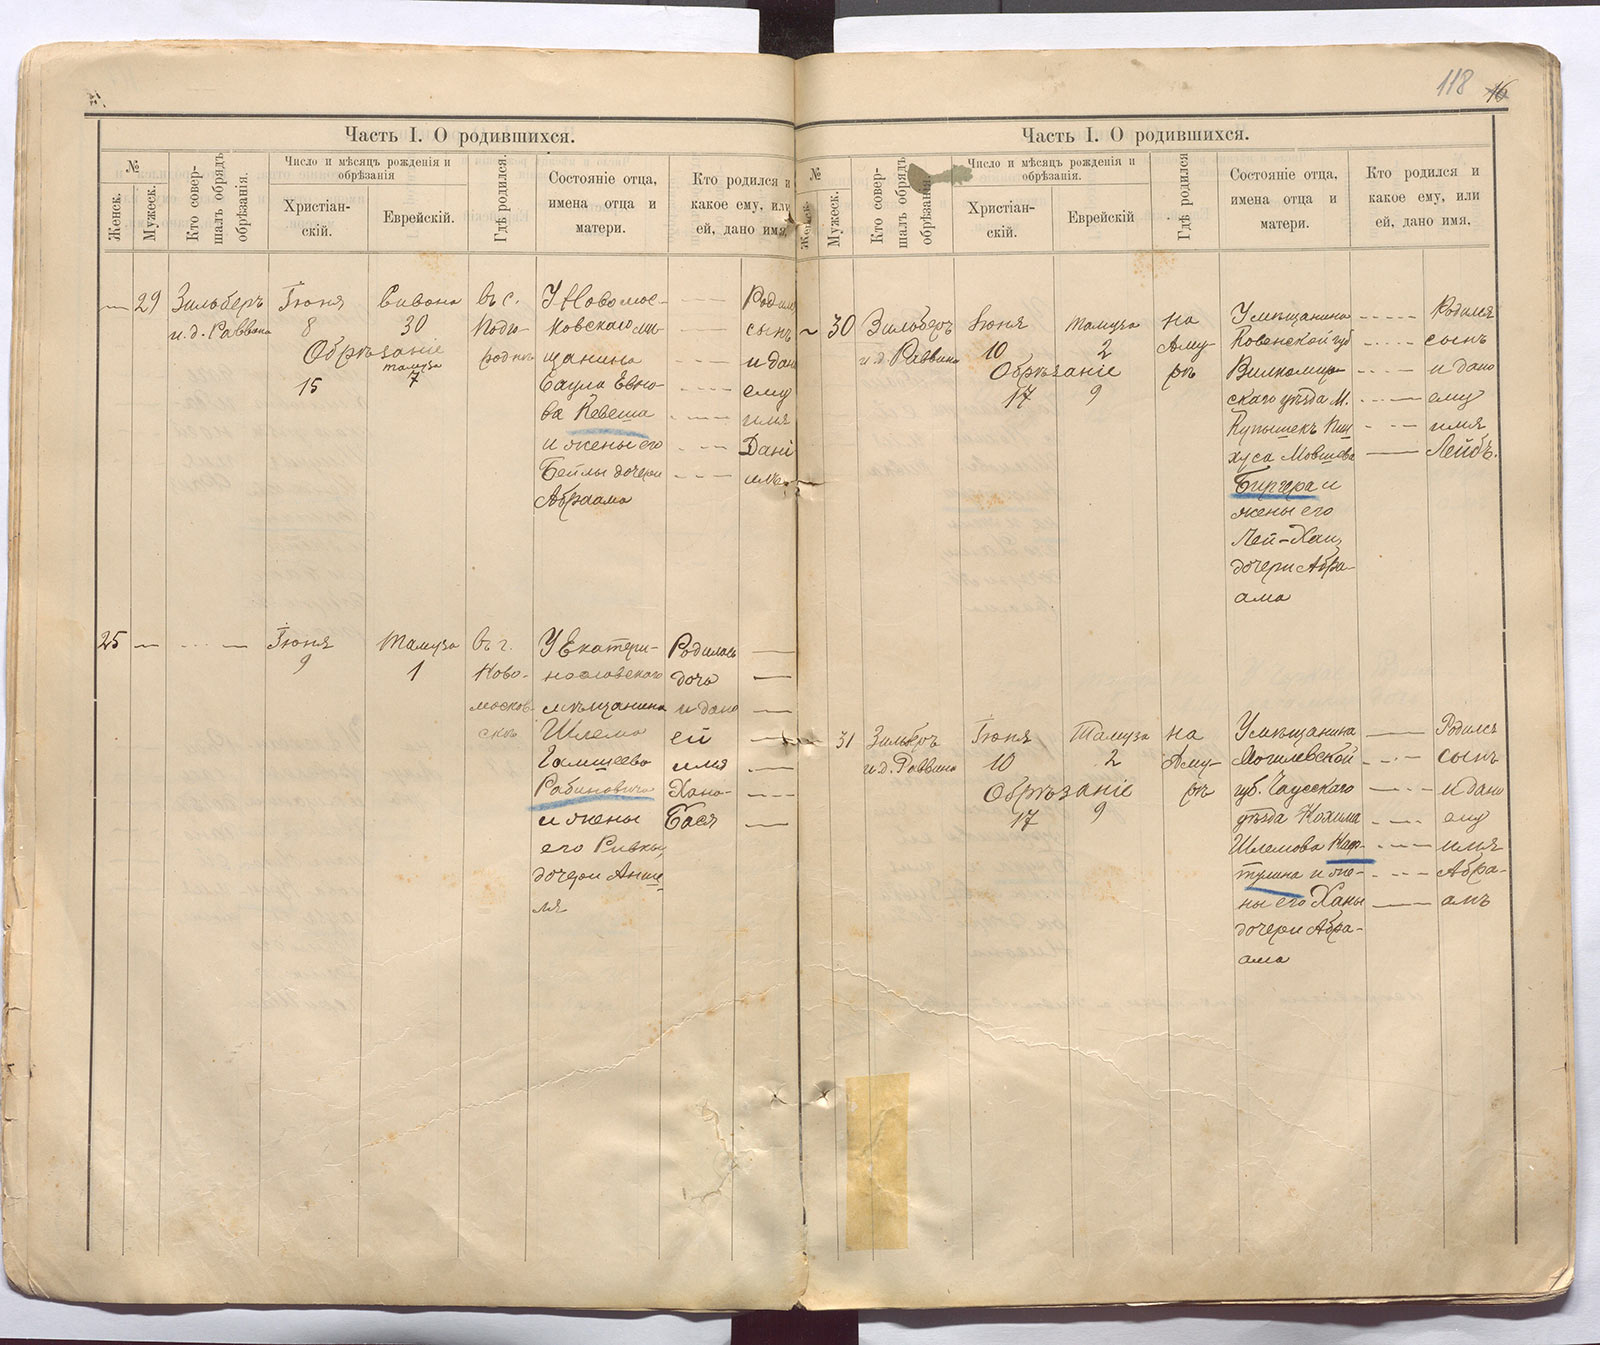 118 16
Часть I. О родившихся.
№
Женск.
Мужеск.
Кто совер-
шалъ обрядъ
обрѣзанія.
Число и мѣсяцъ рожденія и
обрѣзанія
Христіан-
скій.
Еврейскій.
Гдѣ родился.
Состояніе отца,
имена отца и
матери.
Кто родился и
какое ему, или
ей, дано имя,
— 29
Зильберъ
и. д. Раввина
Іюня
8
Сивона
30
Обрѣзаніе
15
тамуза
7
въ с.
Подго-
роднѣ
У Новомос-
ковскаго мѣ-
щанина
Саула Евно-
ва Кевеша
и жены его
Бейлы дочери
Абраама
Родился
сынъ
и дано
ему
имя
Дані
илъ
25 —
Іюня
9
Тамуза
1
въ г.
Ново-
москов-
скѣ
У Екатери-
нославскаго
мѣщанина
Шлема
Рабиновича
и жены
его Ривки,
дочери Анше-
ля
Родилась
дочь
и дано
ей
имя
Хана-
Бася
Часть I. О родившихся.
№
Женск.
Мужеск.
Кто совер-
шалъ обрядъ
обрѣзанія.
Число и мѣсяцъ рожденія и
обрѣзанія.
Христіан-
скій.
Еврейскій
Гдѣ родился
Состояніе отца,
имена отца и
матери.
Кто родился и
какое ему, или
ей, дано имя,
30
Зильберъ
и. д. Раввина
Іюня
10
Тамуза
2
Обрѣзаніе
17 9
на
Аму-
рѣ
У мѣщанина
Ковенской губ
Вилкомир-
скаго уѣзда М.
Купышекъ Пин
хуса Мовшева
Биргера и
жены его
Леи-Хаи,
дочери Абра-
ама
Родился
сынъ
и дано
ему
имя
Лейбъ.
31
Зильберъ
и. д. Раввина
Іюня
10
Тамуза
2
Обрѣзаніе
17 9
на
Аму-
рѣ
У мѣщанина
Могилевской
губ. Чаусскаго
уѣзда Нохима
Шлемова Каф-
тулина и же-
ны его Ханы
дочери Абра-
ама
Родился
сынъ
и дано
ему
имя
Абра-
амъ